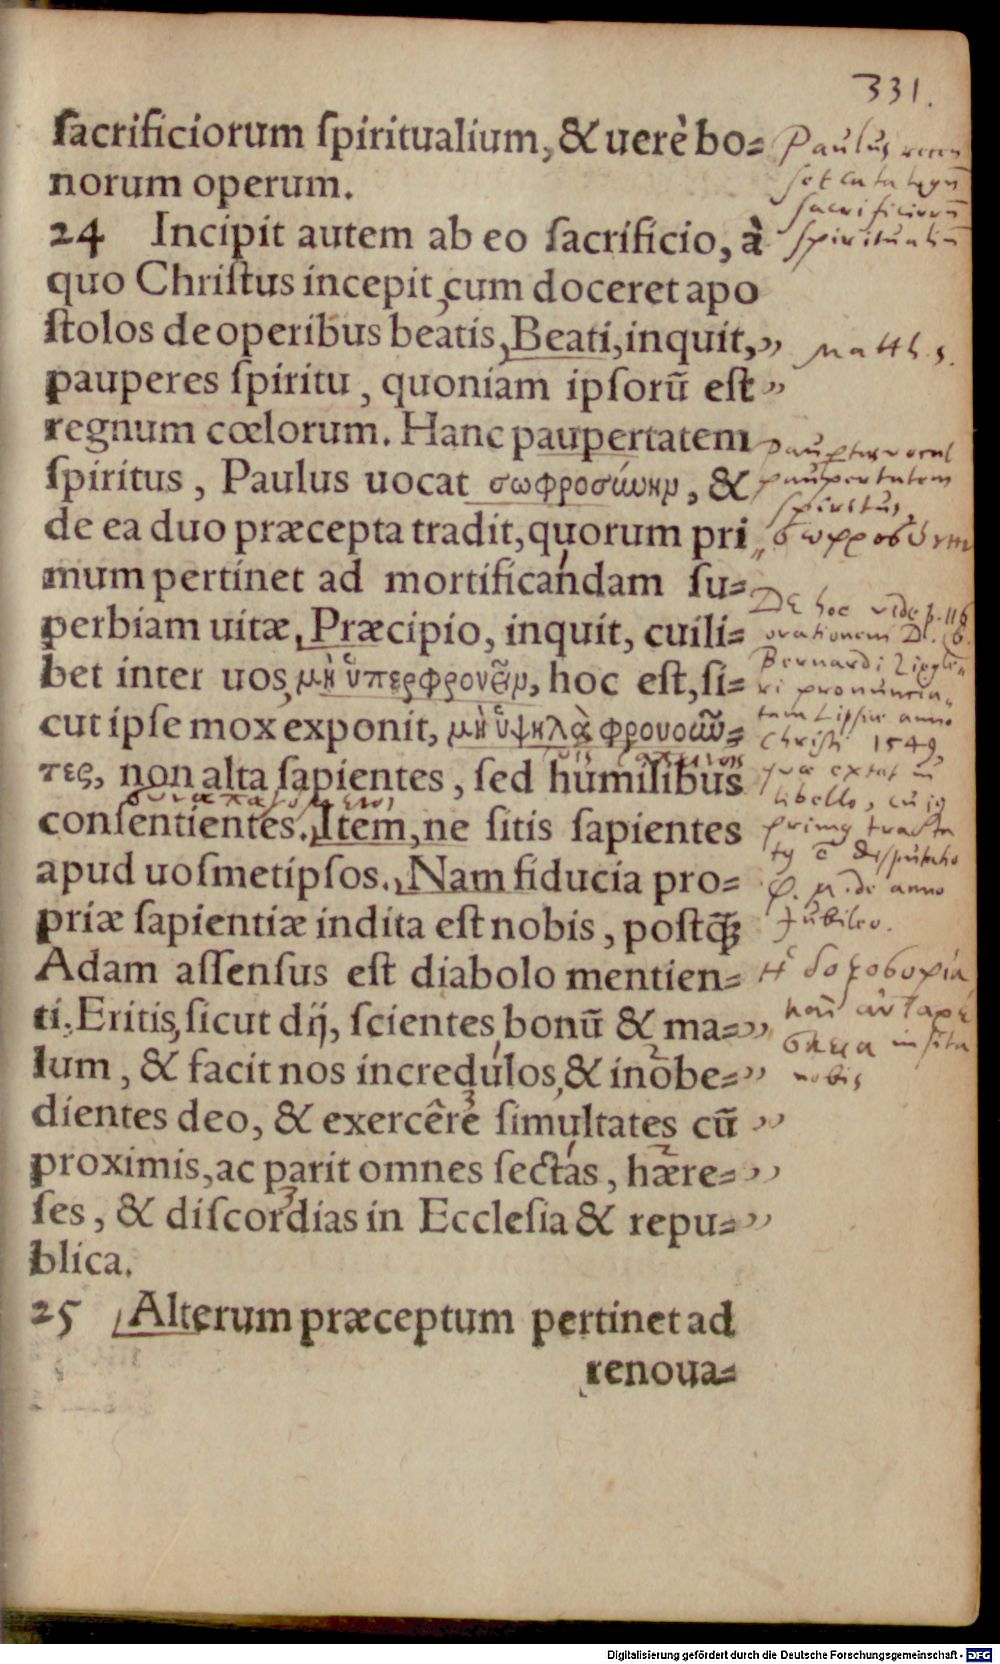 331.
sacrificiorum spiritualium, & uerè bo=
norum operum.
24 Incipit autem ab eo sacrificio, à
quo Christus incepit, cum doceret apo
stolos de operibus beatis, Beati, inquit,
pauperes spiritu, quoniam ipsorū est
regnum cœlorum. Hanc paupertatem
spiritus, Paulus uocat σωφροσύνην, &
de ea duo præcepta tradit, quorum pri
mum pertinet ad mortificandam su=
perbiam uitæ, Præcipio, inquit, cuili=
bet inter uos, μὴ ὑπερφρονεῖν, hoc est, si=
cut ipse mox exponit, μὴ ὑψηλὰ φρονοῦν=
τες, non alta sapientes, sed humilibus
consentientes. Item, ne sitis sapientes
apud uosmetipsos. Nam fiducia pro=
priæ sapientiæ indita est nobis, postꝗ̃
Adam assensus est diabolo mentien=
ti, Eritis sicut dij, scientes bonū & ma=
lum, & facit nos incredulos, & inobe=
dientes deo, & exercêre simultates cū
proximis, ac parit omnes sectas, hære=
ses, & discordias in Ecclesia & repu=
blica.
25 Alterum præceptum pertinet ad
renoua=
Paulus
sacrificiorū
spiritualiū
Matth. 5.
paupertatem
spiritus,
De hoc vide p. 116
orationem D.
Bernardi Ziegle
ri pronuncia
tam Lipsiae anno
Christi 1549,
quae extat in
libello, cuiꝰ
disputatio
de anno
Jubileo.
Ἡ δοξοσοφία
καὶ αὐταρέ
σκεια insita
nobis
Digitalisierung gefördert durch die Deutsche Forschungsgemeinschaft - DFG